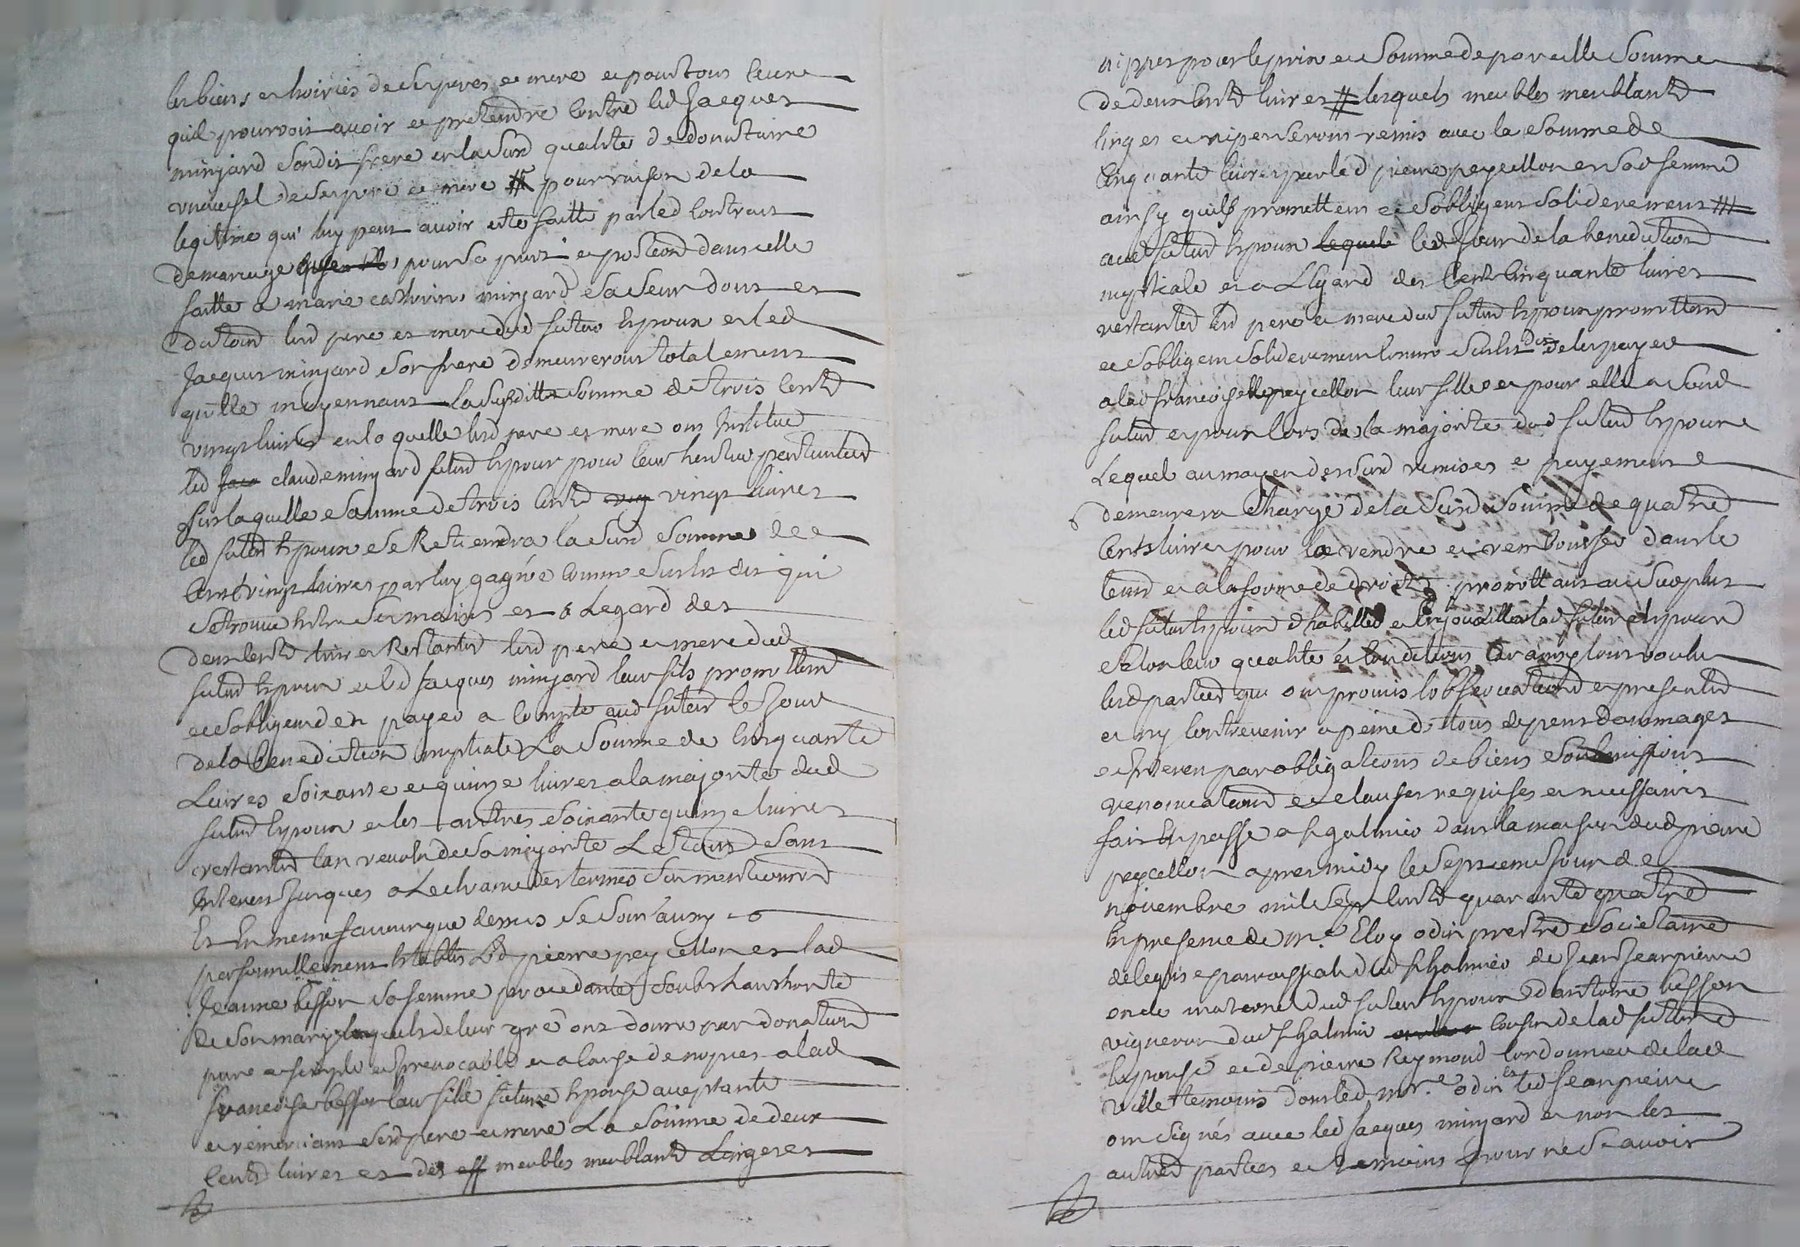 les biens et hoiries de ses peres et mere et pour tous ceux
quil pourroit avoir et pretendre contre led Jacques
minjard sondit frere en la susd qualité de donnataire
universel de ses pere et mere pour raison de la
legitime qui luy peut avoir été faitte par led Contract
de mariage pour sa part et portiond dans celle
faitte a marie catherine minjard sa seur dont et
du toud lesd pere et mere dud futur Epoux et led
Jacques minjard son frere demeureront totalement
quitte moyennant la susditte somme de trois Centd
vingt livres en la quelle lesd pere et mere ont Institué
led claude minjard futur Epoux pour leur heritier particulier
sur laquelle somme de trois Centd vingt livres
led futur Epoux se Retiendra la susd somme de
Cent vingt livres par luy gagnée comme susest dit qui
se trouve Entre ses mains et a Legard des
deux Centd livres Restantes lesd pere et mere dud
futur Epoux et led Jacques minjard leur fils promettent
et sobligent den payer a compte aud futur le Jour
de la benediction nuptiale La Somme de Cinquante
Livres soixante et quinze livres a la majorité dud
futur Epoux et les autres soixante quinze livres
restantes lan revolu de sa majorité Le tout sans
Interest Jusques a Lecheance des termes
Et En meme faveur que dessus se sont aussy
personnellement Etablis Led pierre peycellon et lad
Jeanne besson sa femme procedante soubs Lauthorité
de son mary lesquels de leur gré ont donné par donation
pure et simple et Irrevocable et a cause de nopces a lad
francoise besson leur fille future Epouse aceptante
et remerciant sesd pere et mere La somme de deux
Centd livres et des eff meubles meublantd Linges et
nippes pour le prix et Somme de pareille Somme
de deux Centd livres lesquels meubles meublantd
linges et nipes seront remis avec la somme de
Cinquante livres par led pierre peycellon et sad femme
ainsy quils promettent et sobligent solidairement
aud futur Epoux lequel led Jour de la benediction
nuptiale et a Legard des Cent Cinquante livres
restantes lesd pere et mere dud futur Epoux promettent
et sobligent solidairement comme susest dit de les payer
a lad francoise peycellon leur fille et pour elle a sond
futur Epoux lors de la majorité dud futur Epoux
Lequel au moyen des susd remises et payement
demeurera Chargé de la susd somme de quatre
Cents livres pour la rendre et rembourser dans le
temd et a la forme de droit promettant au surplus
led futur Epoux dhabiller et Enjoualler lad future Epouse
selon leur qualité et Conditions Car ainsy lont voulu
lesd parties qui ont promis lobservationd et presented
et ny Contrevenir a peine de tous depens dommages
et Interest par obligations de biens soumissions
renonciationd et clauses requises et necessaires
fait Et passé a st galmier dans la maison dud pierre
peycellon apres midy le septieme Jour de
novembre mil sept Centd quarante quatre
En presence de mre Eloy odin prestre societaire
de leglise parroissiale dud st galmier de Jean pierre
oncle maternel dud futur Epoux dantoine besson
vigneron dud st galmier cousin de lad future
Epouse et de pierre Reymond Cordonnier de lad
ville temoins dont led mre odin et led Jean pierre
ont signés avec led Jacques minjard et non les
autres parties et temoins pour ne scavoir